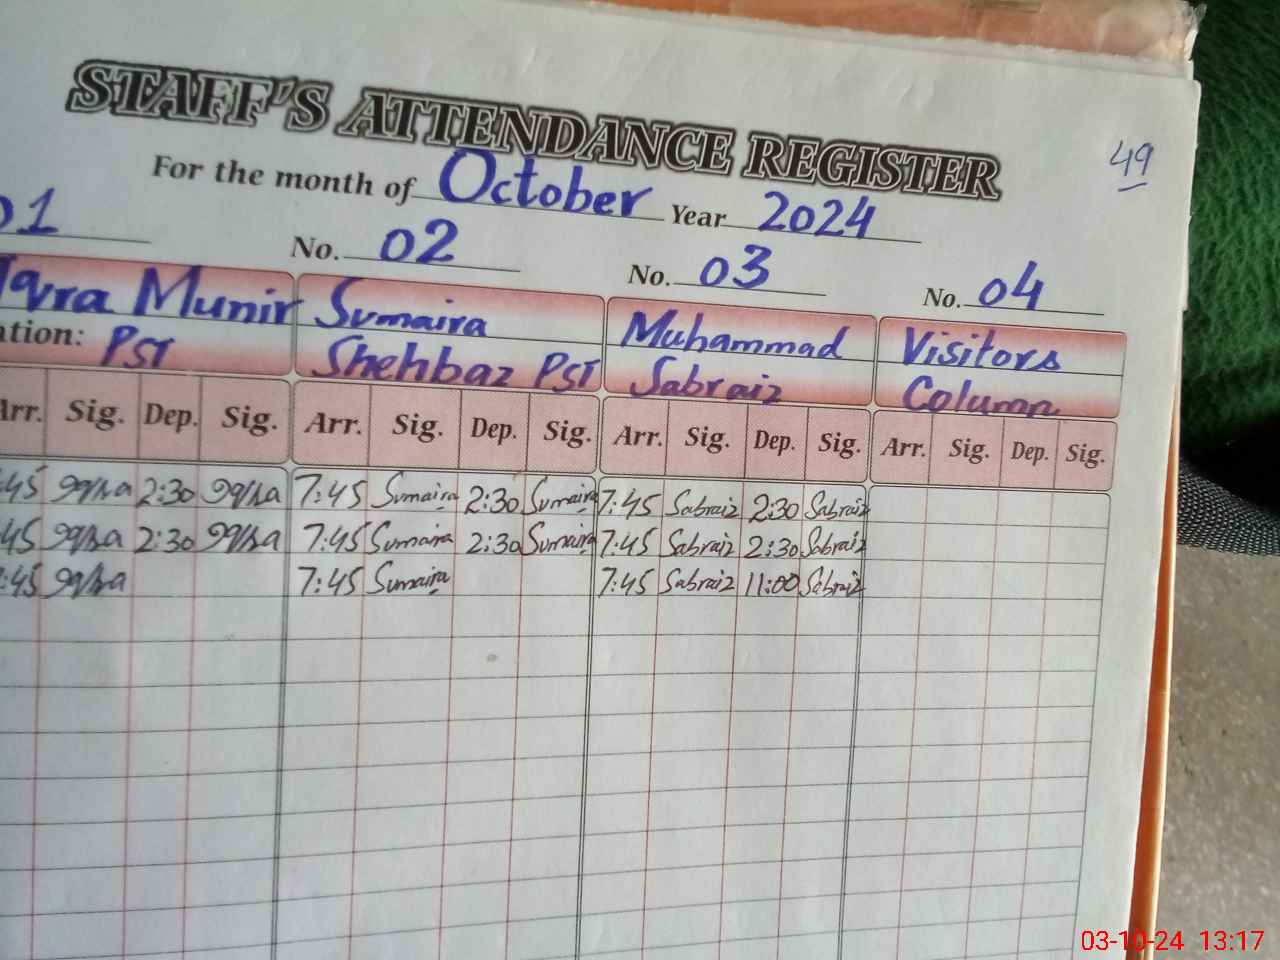 STAFF'S ATTENDANCE REGISTER
49
For the month of October Year 2024
01 No. 02 No. 03 No. 04
Iqra Munir Sumaira Muhammad Visitors
ation: PST Shehbaz PST Sabraiz Column
Arr. Sig. Dep. Sig. Arr. Sig. Dep. Sig. Arr. Sig. Dep. Sig. Arr. Sig. Dep. Sig.
:45 Iqra 2:30 Iqra 7:45 Sumaira 2:30 Sumaira 7:45 Sabraiz 2:30 Sabraiz
:45 Iqra 2:30 Iqra 7:45 Sumaira 2:30 Sumaira 7:45 Sabraiz 2:30 Sabraiz
:45 Iqra 7:45 Sumaira 7:45 Sabraiz 11:00 Sabraiz
03-10-24 13:17